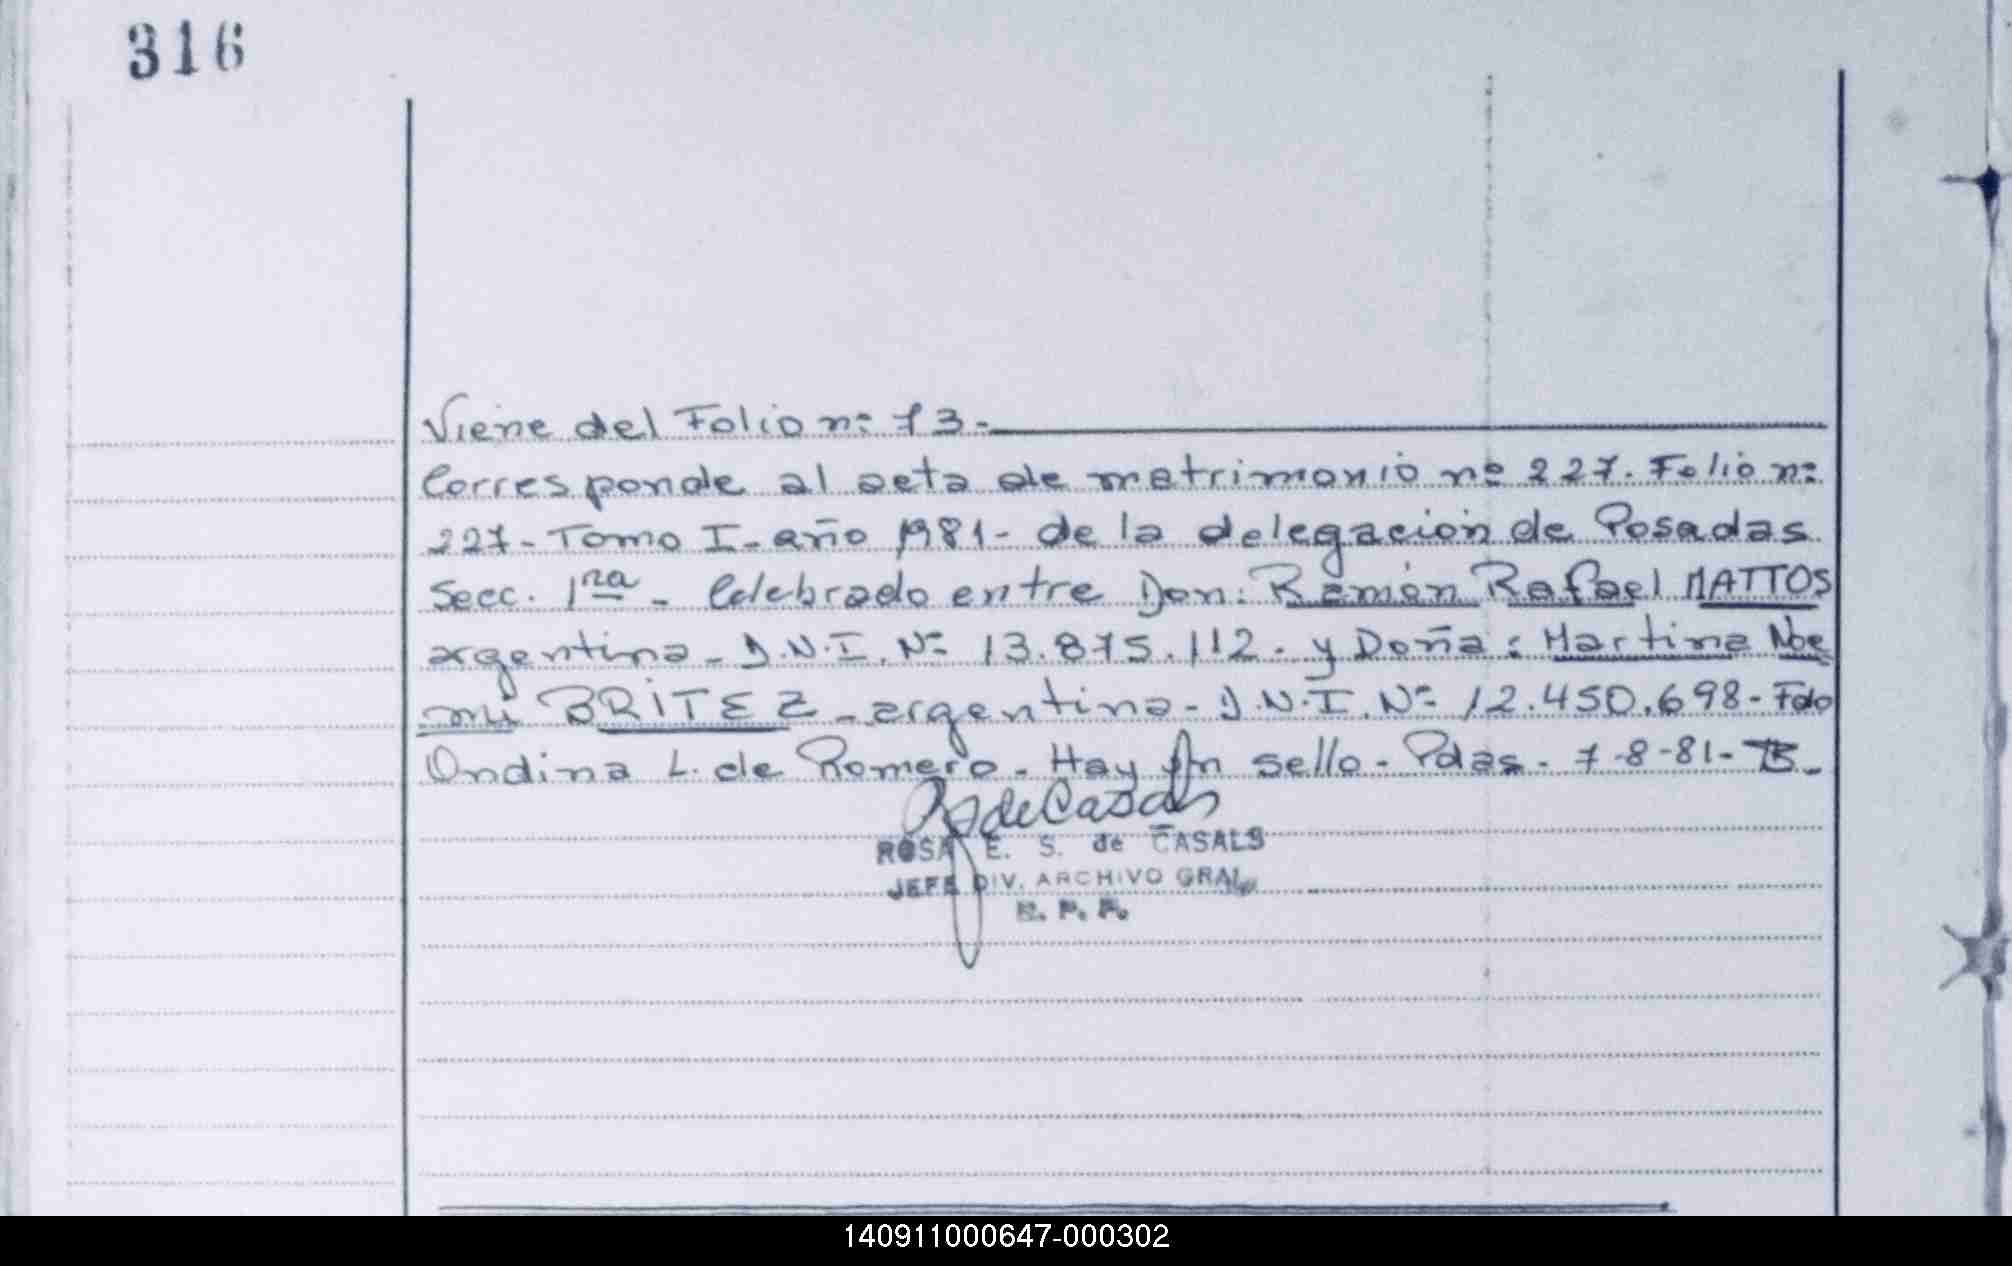 316
Viene del Folio n: 73-
Corresponde al acta de matrimonio nº 227. Folio n:
227- Tomo I- año 1981- de la delegación de Posadas
Secc. 1ra - Celebrado entre Don: Ramón Rafael MATTOS
argentino- D.N.I. Nº 13.875.112. y Doña: Martina Noe
mi BRITEZ - argentina- D.N.I. Nº 12.450.698- Fdo
Ondina L. de Romero. Hay un sello- Pdas- 7-8-81-
ROSA E. S. de CASALS
JEFE DIV. ARCHIVO GRAL
R. P. P.
140911000647-000302